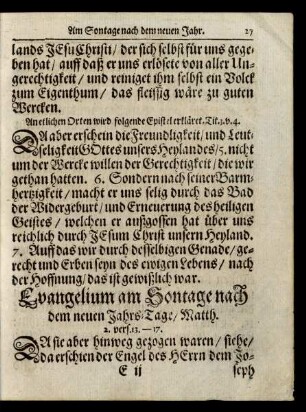 Am Sontage nach dem neuen Jahr. 27
lands JEsu Christi / der sich selbst für uns gege-
ben hat / auff daß er uns erlösete von aller Un-
gerechtigkeit / und reiniget ihm selbst ein Volck
zum Eigenthum / das fleissig wäre zu guten
Wercken.
An etlichen Orten wird folgende Epistel erkläret. Tit. 3. v. 4.
DA aber erschein die Freundligkeit / und Leut-
seligkeit GOttes unsers Heylandes / 5. nicht
um der Wercke willen der Gerechtigkeit / die wir
gethan hatten. 6. Sondern nach seiner Barm-
hertzigkeit / macht er uns selig durch das Bad
der Widergeburt / und Erneuerung des heiligen
Geistes / welchen er außgossen hat über uns
reichlich durch JEsum Christ unsern Heyland.
7. Auff das wir durch desselbigen Genade / ge-
recht und Erben seyn des ewigen Lebens / nach
der Hoffnung / das ist gewißlich war.
Evangelium am Sontage nach
dem neuen Jahrs-Tage / Matth.
2. vers. 13. — 17.
DA sie aber hinweg gezogen waren / siehe /
da erschien der Engel des HErrn dem Jo-
E ij seph